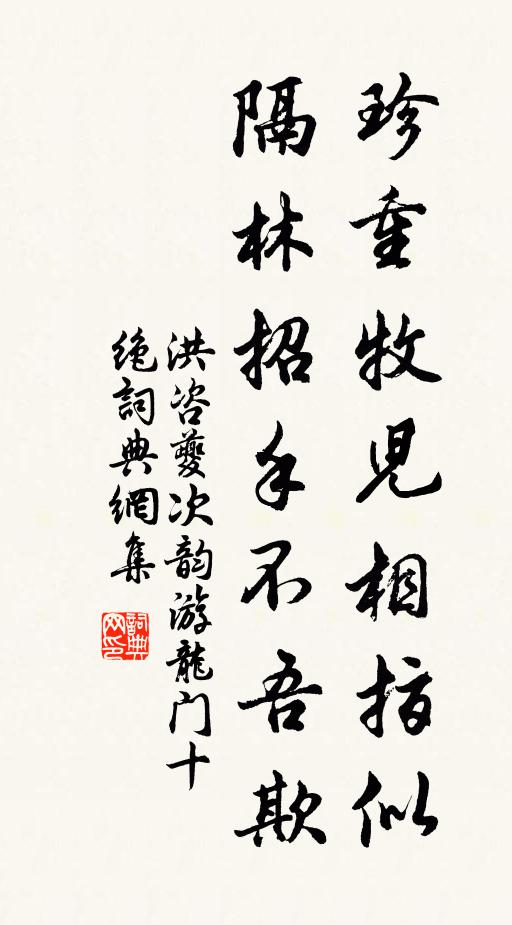 珍重牧児相指似
隔林招手不吾欺
洪咨夔次韵游龍门十
绝詞典網集
詞典
网印